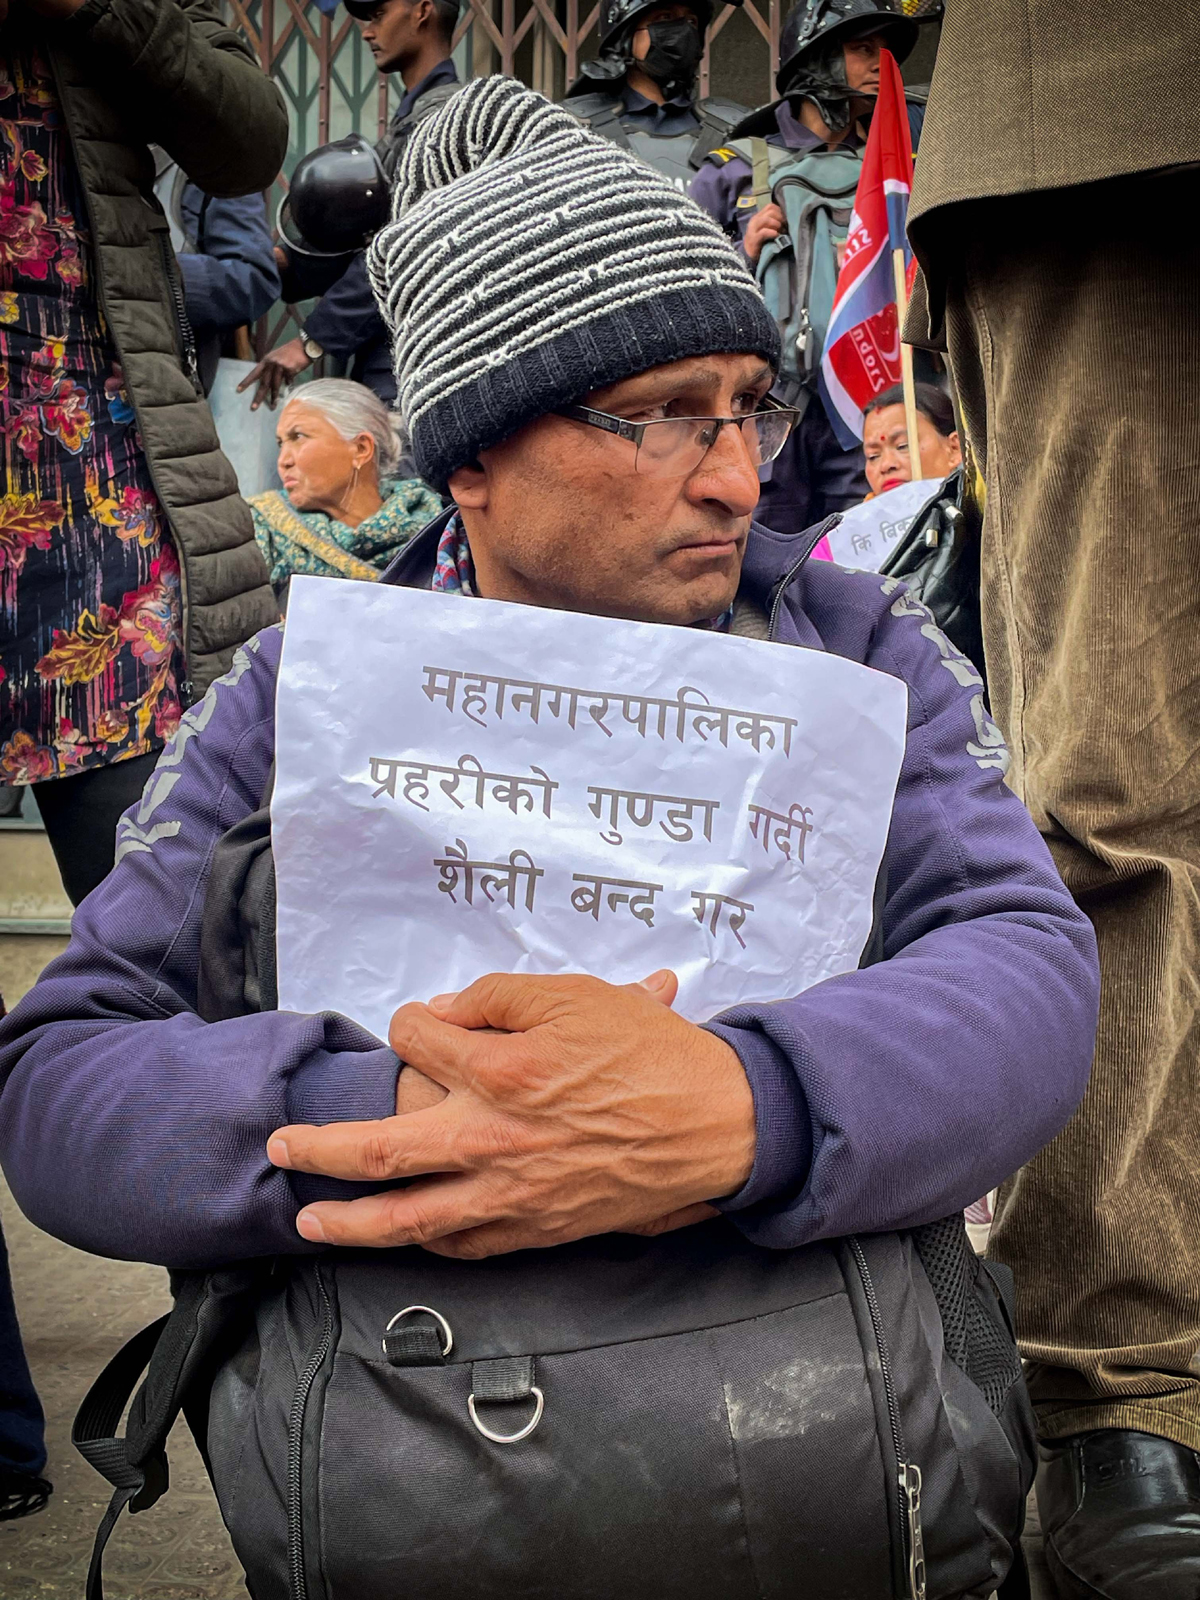 महानगरपालिका
प्रहरीको गुण्डा गर्दी
शैली बन्द गर
कि
ndors